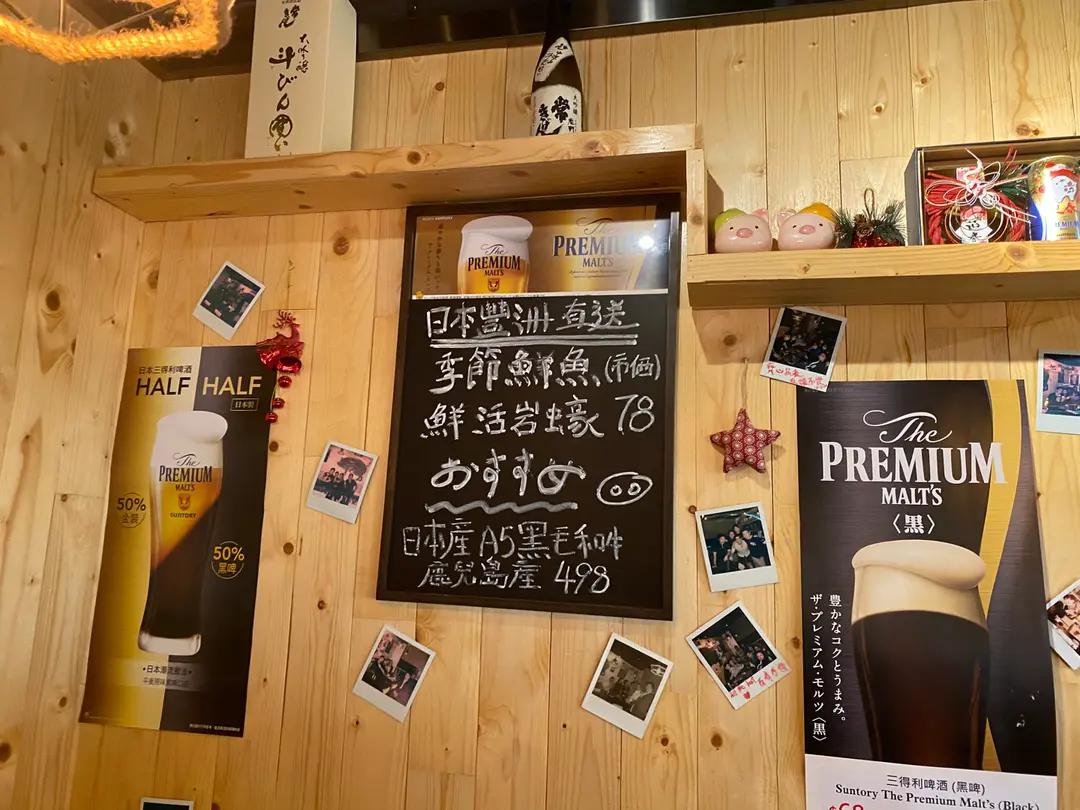 大吟醸
斗びん囲い
大吟醸
常
The
PREMIUM
MALT'S
The
PREMIUM
MALT'S
日本豐洲直送
季節鮮魚(市価)
鮮活岩蠔 78
おすすめ
日本産A5黒毛和牛
鹿児島産 498
日本三得利啤酒
HALF HALF
日本製
The
PREMIUM
MALT'S
SUNTORY
50%
金裝
50%
黑啤
The
PREMIUM
MALT'S
〈黒〉
豊かなコクとうまみ。
ザ・プレミアム・モルツ〈黒〉
三得利啤酒 (黑啤)
Suntory The Premium Malt's (Black)
$68